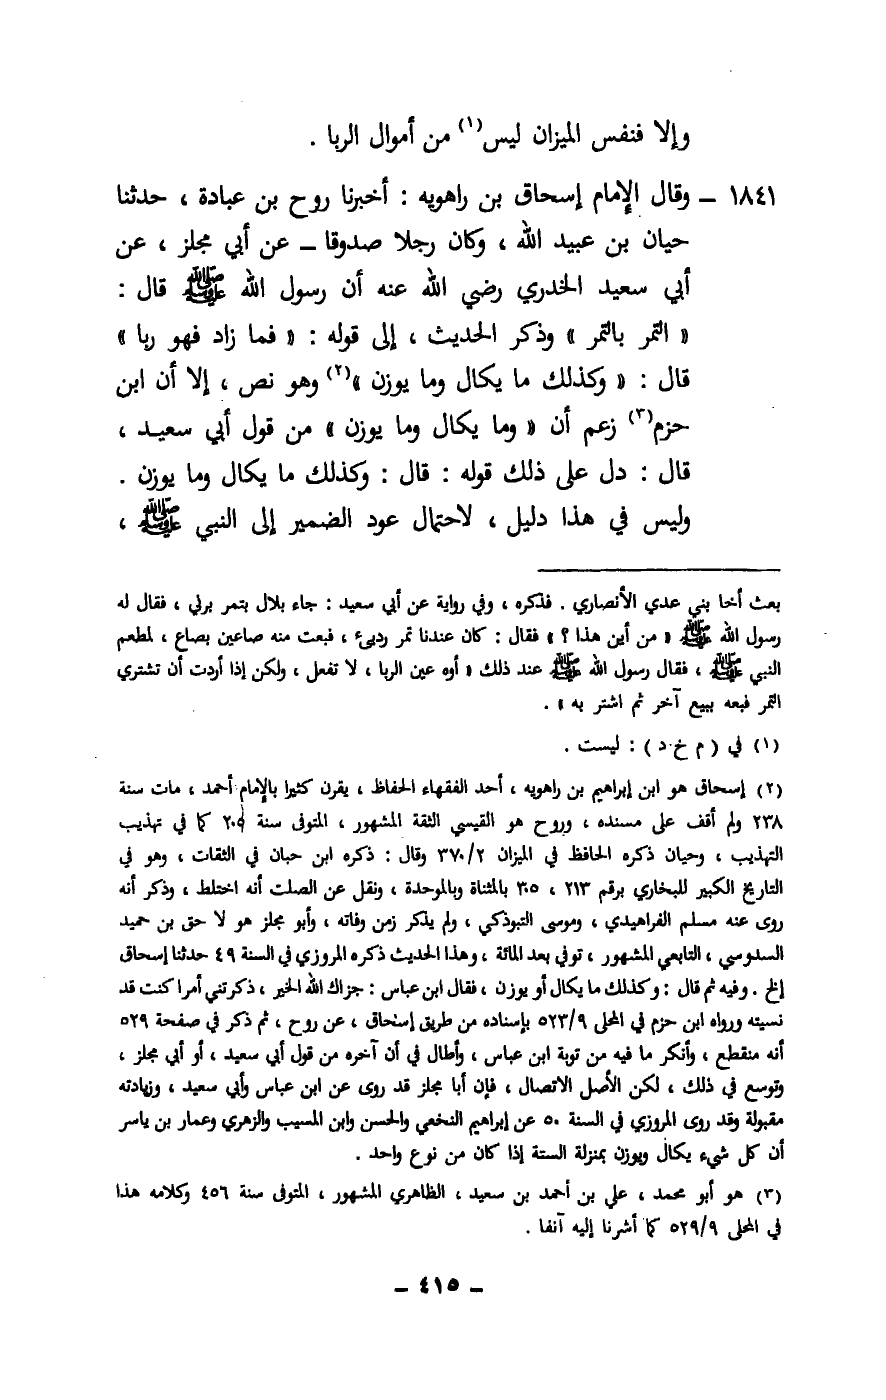 وإلا فنفس الميزان ليس(١) من أموال الربا .
١٨٤١ – وقال الإمام إسحاق بن راهويه : أخبرنا روح بن عبادة ، حدثنا
حيان بن عبيد الله ، وكان رجلا صدوقا – عن أبي مجلز ، عن
أبي سعيد الخدري رضي الله عنه أن رسول الله ﷺ قال :
« التمر بالتمر » وذكر الحديث ، إلى قوله : « فما زاد فهو ربا »
قال : « وكذلك ما يكال وما يوزن »(٢) وهو نص ، إلا أن ابن
حزم(٣) زعم أن « وما يكال وما يوزن » من قول أبي سعيد ،
قال : دل على ذلك قوله : قال : وكذلك ما يكال وما يوزن .
وليس في هذا دليل ، لاحتمال عود الضمير إلى النبي ﷺ ،
بعث أخا بني عدي الأنصاري . فذكره ، وفي رواية عن أبي سعيد : جاء بلال بتمر برني ، فقال له
رسول الله ﷺ « من أين هذا ؟ » فقال : كان عندنا تمر رديء ، فبعت منه صاعين بصاع ، لمطعم
النبي ﷺ ، فقال رسول الله ﷺ عند ذلك « أوه عين الربا ، لا تفعل ، ولكن إذا أردت أن تشتري
التمر فبعه ببيع آخر ثم اشتر به » .
(١) في ( م خ د ) : ليست .
(٢) إسحاق هو ابن إبراهيم بن راهويه ، أحد الفقهاء الحفاظ ، يقرن كثيرا بالإمام أحمد ، مات سنة
٢٣٨ ولم أقف على مسنده ، وروح هو القيسي الثقة المشهور ، المتوفى سنة ٢٠٥ كما في تهذيب
التهذيب ، وحيان ذكره الحافظ في الميزان ٣٧٠/٢ وقال : ذكره ابن حبان في الثقات ، وهو في
التاريخ الكبير للبخاري برقم ٢١٣ ، ٣٠٥ بالمثناة وبالموحدة ، ونقل عن الصلت أنه اختلط ، وذكر أنه
روى عنه مسلم الفراهيدي ، وموسى التبوذكي ، ولم يذكر زمن وفاته ، وأبو مجلز هو لا حق بن حميد
السدوسي ، التابعي المشهور ، توفي بعد المائة ، وهذا الحديث ذكره المروزي في السنة ٤٩ حدثنا إسحاق
إلخ . وفيه ثم قال : وكذلك ما يكال أو يوزن ، فقال ابن عباس : جزاك الله الخير ، ذكرتني أمرا كنت قد
نسيته ورواه ابن حزم في المحلى ٥٢٣/٩ بإسناده من طريق إسحاق ، عن روح ، ثم ذكر في صفحة ٥٢٩
أنه منقطع ، وأنكر ما فيه من توبة ابن عباس ، وأطال في أن آخره من قول أبي سعيد ، أو أبي مجلز ،
وتوسع في ذلك ، لكن الأصل الاتصال ، فإن أبا مجلز قد روى عن ابن عباس وأبي سعيد ، وزيادته
مقبولة وقد روى المروزي في السنة ٥٠ عن إبراهيم النخعي والحسن وابن المسيب والزهري وعمار بن ياسر
أن كل شيء يكال ويوزن بمنزلة الستة إذا كان من نوع واحد .
(٣) هو أبو محمد ، علي بن أحمد بن سعيد ، الظاهري المشهور ، المتوفى سنة ٤٥٦ وكلامه هذا
في المحلى ٥٢٩/٩ كما أشرنا إليه آنفا .
– ٤١٥ –